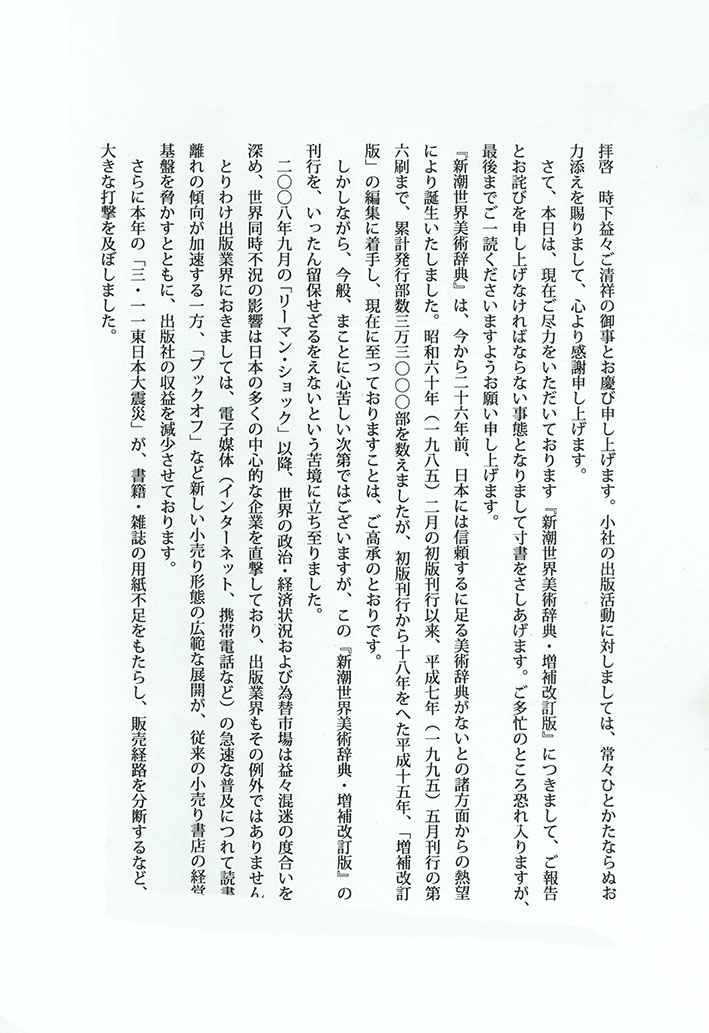 拝啓　時下益々ご清祥の御事とお慶び申し上げます。小社の出版活動に対しましては、常々ひとかたならぬお
力添えを賜りまして、心より感謝申し上げます。
さて、本日は、現在ご尽力をいただいております『新潮世界美術辞典・増補改訂版』につきまして、ご報告
とお詫びを申し上げなければならない事態となりまして寸書をさしあげます。ご多忙のところ恐れ入りますが、
最後までご一読くださいますようお願い申し上げます。
『新潮世界美術辞典』は、今から二十六年前、日本には信頼するに足る美術辞典がないとの諸方面からの熱望
により誕生いたしました。昭和六十年（一九八五）二月の初版刊行以来、平成七年（一九九五）五月刊行の第
六刷まで、累計発行部数三万三〇〇〇部を数えましたが、初版刊行から十八年をへた平成十五年、「増補改訂
版」の編集に着手し、現在に至っておりますことは、ご高承のとおりです。
しかしながら、今般、まことに心苦しい次第ではございますが、この『新潮世界美術辞典・増補改訂版』の
刊行を、いったん留保せざるをえないという苦境に立ち至りました。
二〇〇八年九月の「リーマン・ショック」以降、世界の政治・経済状況および為替市場は益々混迷の度合いを
深め、世界同時不況の影響は日本の多くの中心的な企業を直撃しており、出版業界もその例外ではありません
とりわけ出版業界におきましては、電子媒体（インターネット、携帯電話など）の急速な普及につれて読書
離れの傾向が加速する一方、「ブックオフ」など新しい小売り形態の広範な展開が、従来の小売り書店の経営
基盤を脅かすとともに、出版社の収益を減少させております。
さらに本年の「三・一一東日本大震災」が、書籍・雑誌の用紙不足をもたらし、販売経路を分断するなど、
大きな打撃を及ぼしました。